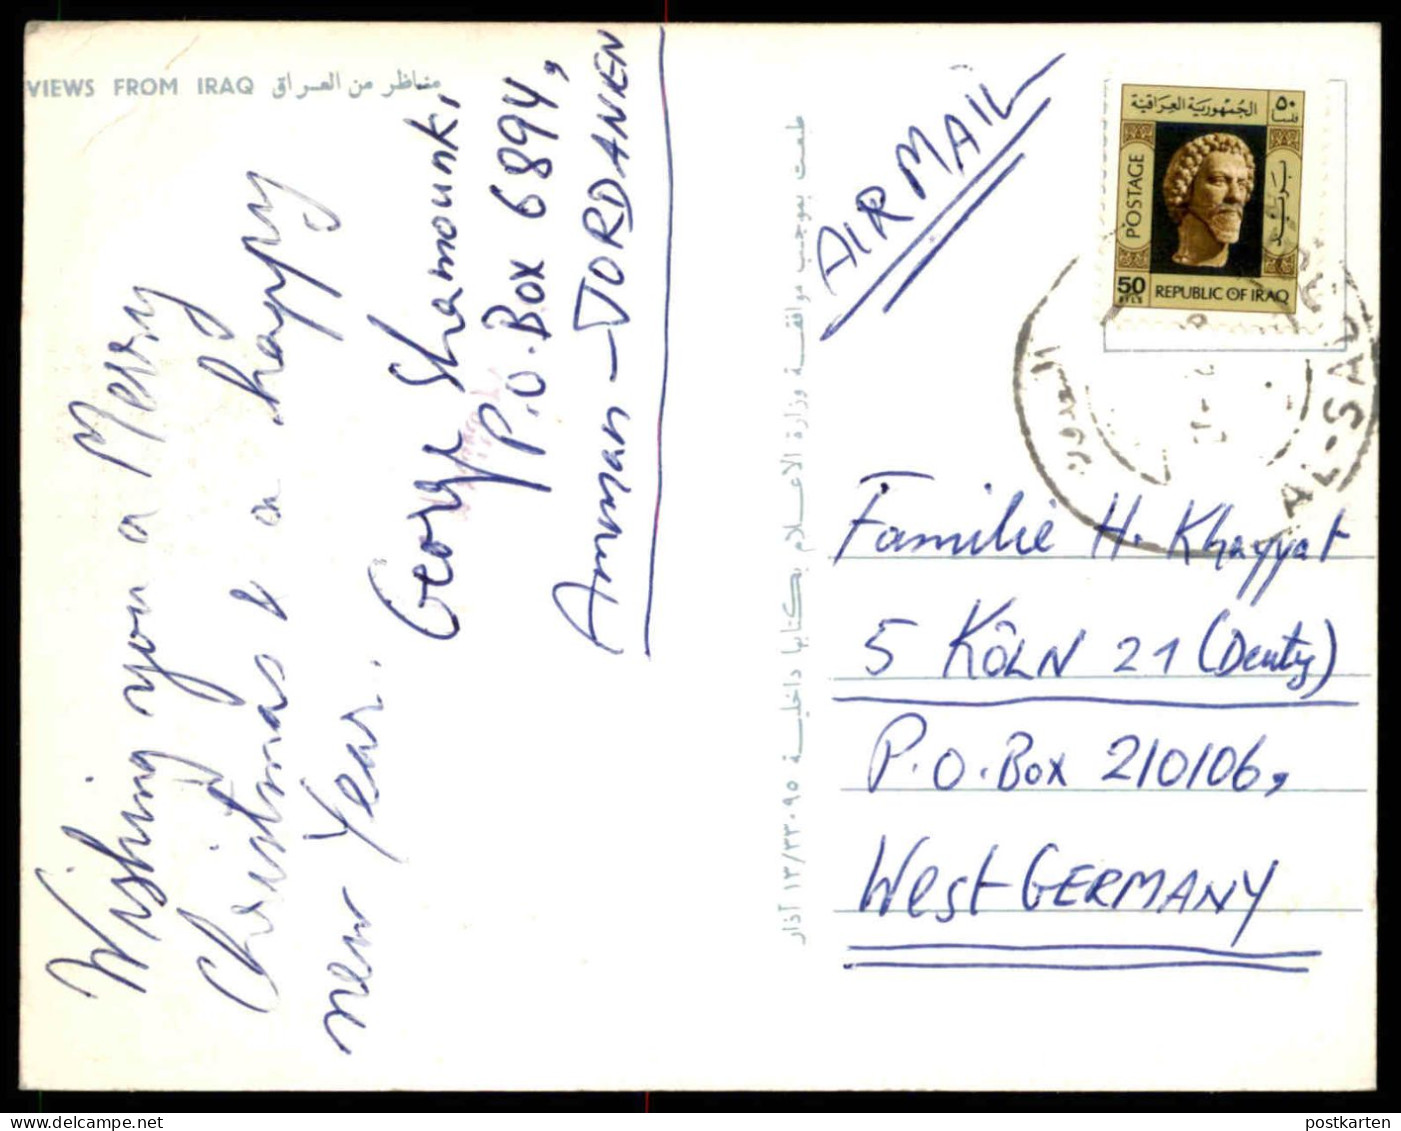 VIEWS FROM IRAQ مناظر من العراق
Wishing you a Merry
Christmas & a happy
new Year.
George Shamounki,
P.O.Box 6894,
Amman - JORDANIEN
طبعت بموجب موافقة وزارة الاعلام بكتابها داخلية ١٣/٣٣٠٩٥ آذار
AIR MAIL
الجمهورية العراقية
٥٠
فلسا
بريد
POSTAGE
50
FILS
REPUBLIC OF IRAQ
السعدون
AL-SA
Familie H. Khayyat
5 KÖLN 21 (Deutz)
P.O.Box 210106,
West GERMANY
postkarten